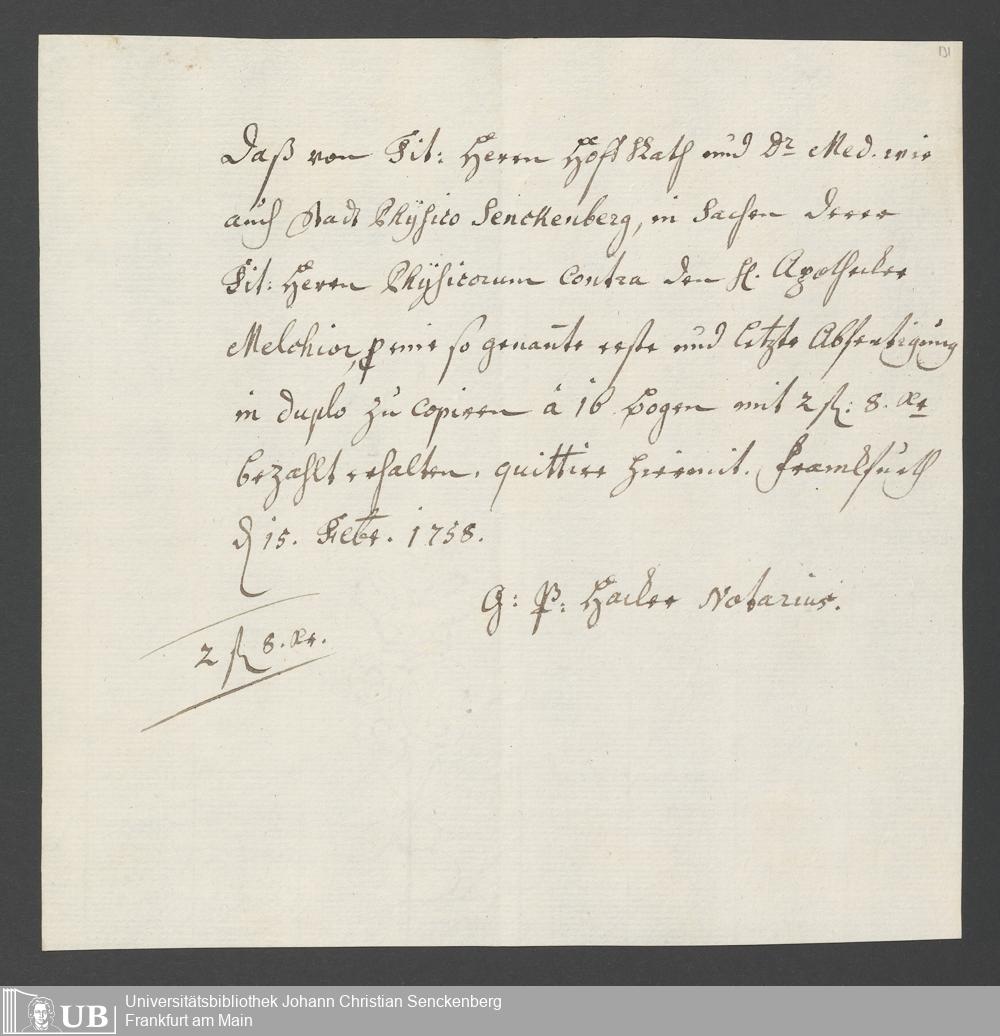 131
Daß von Tit: Herrn Hoff Rath und Dr. Med. wie
auch Stadt Physico Senckenberg, in Sachen derer
Tit: Herrn Physicorum contra den H. Apothecker
Melchior, p eine so genañte erste und letzte Abfertigung
in duplo zu copiren à 16 bogen mit 2 fl: 8. Xr
bezahlt erhalten, quittire hiermit. Franckfurth
d 15. Febr. 1758.
G: P: Hacker Notarius.
2 fl 8. Xr.
UB
Universitätsbibliothek Johann Christian Senckenberg
Frankfurt am Main